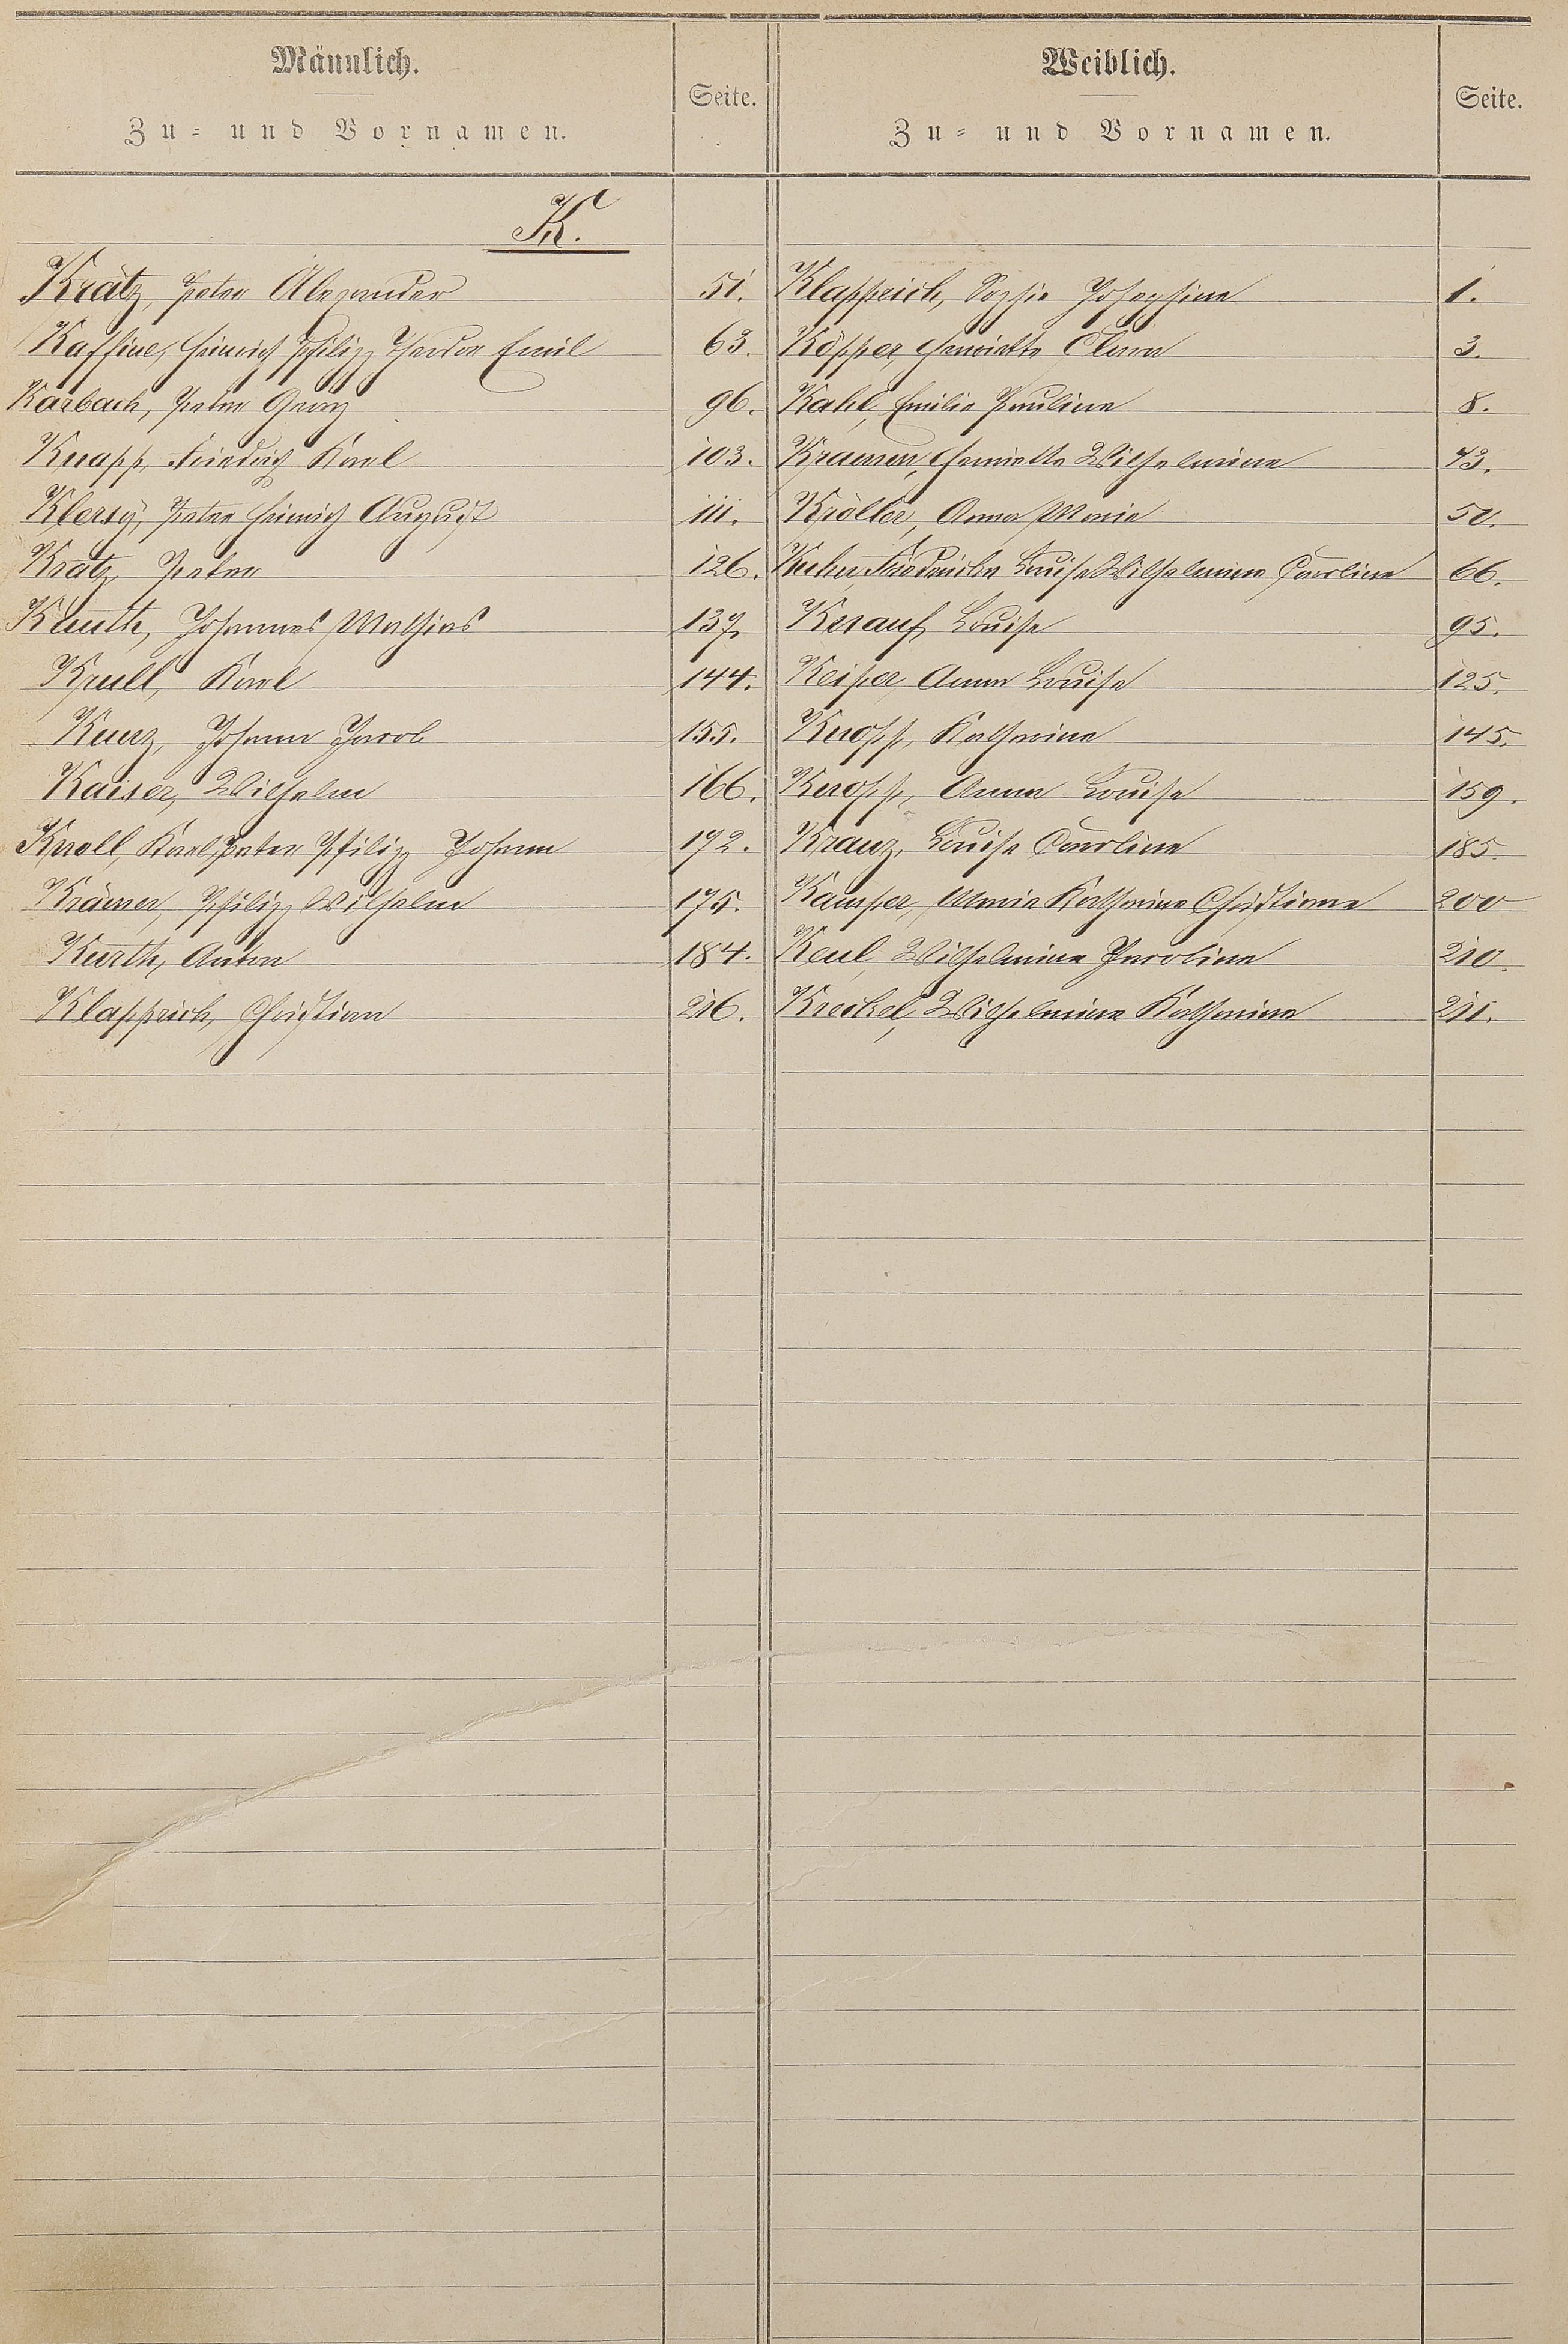 Männlich.
Zu- und Vornamen.
Seite.
Weiblich.
Zu- und Vornamen.
Seite.
K.
Krätz, Peter Alexander 51. Klapprich, Sophie Josephine 1.
Kaffine, Heinrich Philipp Theodor Emil 63. Köpper, Henriette Clara 3.
Karbach, Peter Georg 96. Kahl, Emilie Pauline 8.
Knapp, Friedrich Karl 103. Kramen, Henriette Wilhelmine 43.
Klersy, Peter Heinrich August 111. Kröller, Anna Maria 50.
Kratz, Peter 126. Friedericke Louise Wilhelmine Caroline 66.
Kauth, Johannes Mathias 137. Knauf, Louise 95.
Krull, Karl 144. Keiper, Anna Louise 125.
Kunz, Johann Jacob 155. Knopp, Katharina 145.
Kaiser, Wilhelm 166. Knopp, Anna Louise 159.
Knoll, Karl Peter Philipp Johann 172. Kranz, Louise Caroline 185.
Krämer, Philipp Wilhelm 175. Kamper, Maria Katharina Christiane 200
Kurth, Anton 184. Keul, Wilhelmine Jacobine 210.
Klapprich, Christian 216. Kreckel, Wilhelmine Katharina 211.